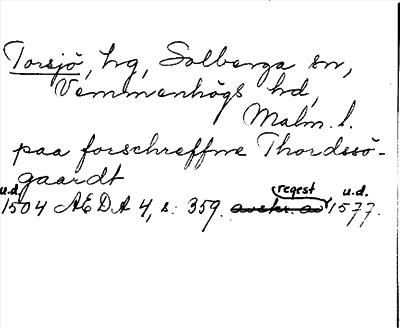 Torsjö, hg, Solberga sn,
Vemmenhögs hd,
Malm. l.
paa forschreffne Thordssö-
gaardt
u.d. regest u.d.
1504 AEDA 4, s. 359. avskr. av 1577.